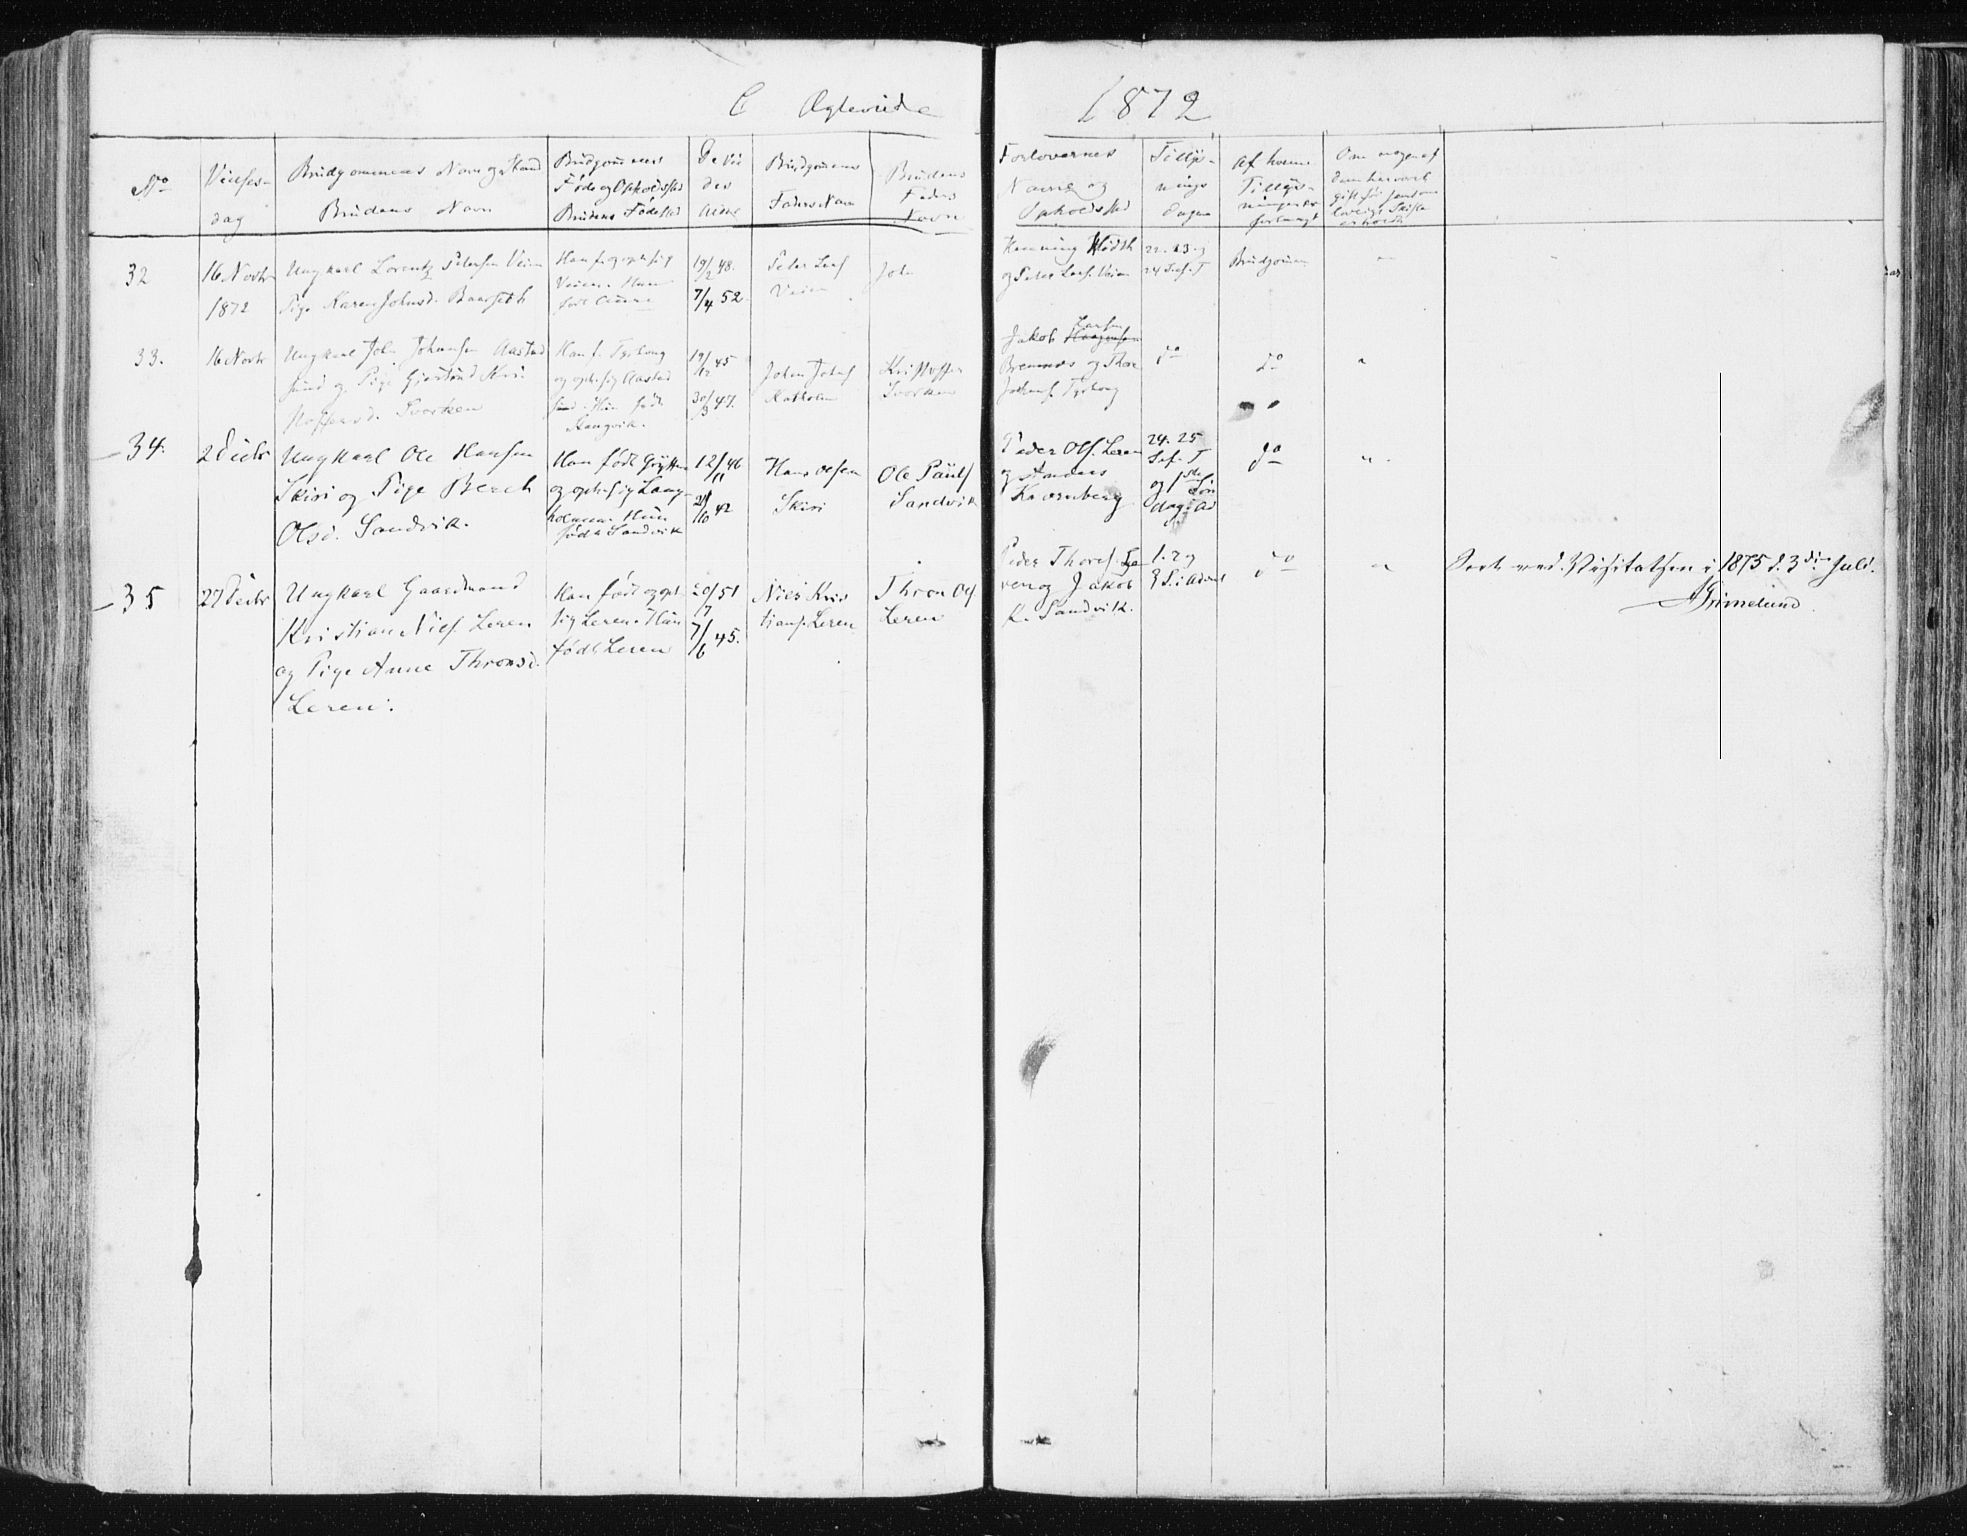 C Ægteviede 1872
No
Vielses-
dag
Brudgommens Navn og Stand
Brudens Navn
Brudgommens
Føde og Opholdssted
Brudens Fødested
De Vie
des
Alder
Brudgommens
Faders Navn
Brudens
Faders
Navn
Forlovernes
Navne og
Opholdssted
Tillys-
nings
dagene
Af hvem
Tillys-
ningen er
forlangt
32
16 Novbr
1872
Ungkarl Lorentz Petersen Veien
Pige Karen Johnsd. Baarseth
Han f. og oph. sig
Veien. Hun
født Aure
19/2 48.
7/4 52.
Peter Larsf
Veien
John
Henning Hødth
og Peter Larsf. Veien
22. 23. og
24 S. ef. T
Brudgommen
"
33.
16 Novbr
Ungkarl John Johansen Aastad
sund og Pige Gjertrud Kri-
stoffersd. Svorken
Han f. Tyrhong
og oph. sig Aastad
sund. Hun født
Stangvik.
19/12 45
30/3 47.
John Johsf
Ratholm
Kristoffer
Svorken
Larsen
Jakob
Bremnes og Thore
Johansf. Tyrhong
do
do
"
34.
2 Decbr
Ungkarl Ole Hansen
Skiri og Pige Bereth
Olsd. Sandvik.
Han født Grytten
og oph. sig Lang-
holmen. Hun
født Sandvik
12/11 46
21/10 42
Hans Olsen
Skiri
Ole Paulsf
Sandvik
Peder Olsf. Leren
og Anders
Kvernberg
24. 25
S. ef. T
og 1ste Søn
dag i Ad
do
"
35
27 Decbr
Ungkarl Gaardmand
Kristian Nielsf. Leren
og Pige Anne Thronsd.
Leren.
Han født og oph.
sig Leren. Hun
født Leren
20/7 51
7/6 45.
Niels Kris
tiansf. Leren
Thron Olsf
Leren
Peder Thoresf. Le
ren og Jakob
K. Sandvik.
1. 2 og
3 S. i Advent
do
"
Seet ved Visitatsen i 1875 d. 3die Juli.
Grimelund